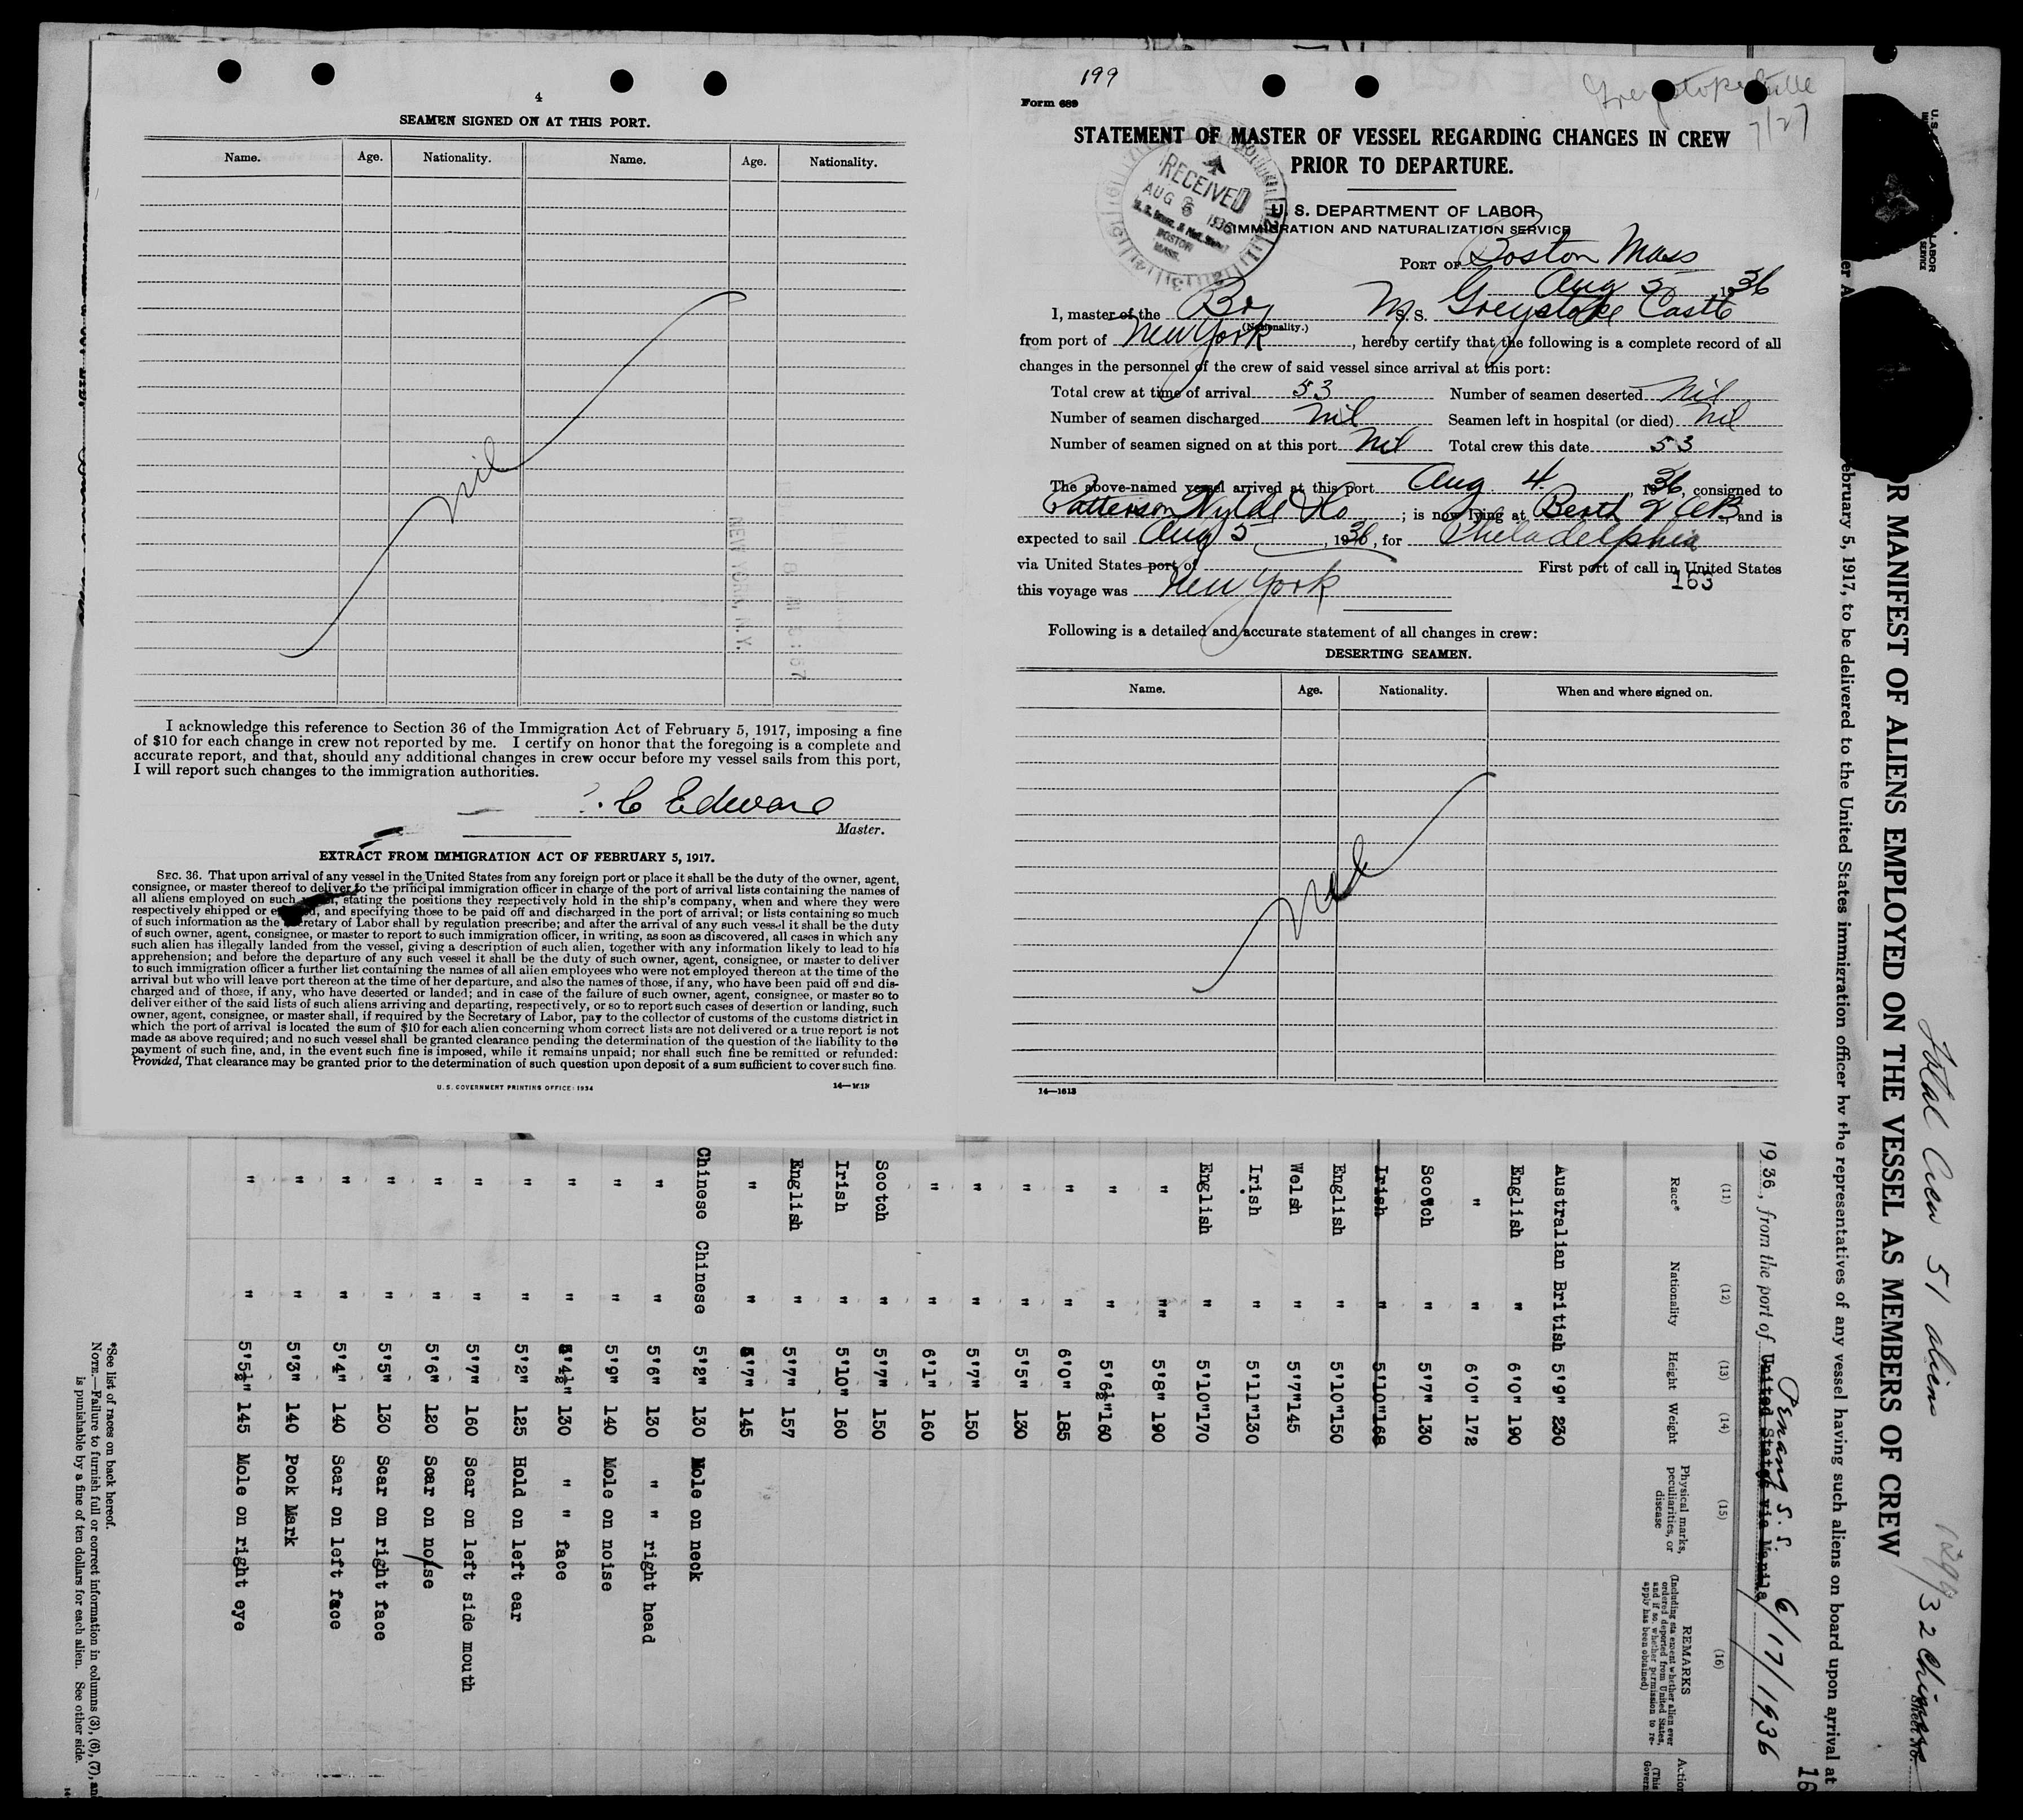 4
SEAMEN SIGNED ON AT THIS PORT.
Name. Age. Nationality. Name. Age. Nationality.
nil
NEW YORK, N.Y.
I acknowledge this reference to Section 36 of the Immigration Act of February 5, 1917, imposing a fine
of $10 for each change in crew not reported by me. I certify on honor that the foregoing is a complete and
accurate report, and that, should any additional changes in crew occur before my vessel sails from this port,
I will report such changes to the immigration authorities.
C Edward
Master.
EXTRACT FROM IMMIGRATION ACT OF FEBRUARY 5, 1917.
SEC. 36. That upon arrival of any vessel in the United States from any foreign port or place it shall be the duty of the owner, agent,
consignee, or master thereof to deliver to the principal immigration officer in charge of the port of arrival lists containing the names of
all aliens employed on such stating the positions they respectively hold in the ship's company, when and where they were
respectively shipped or and specifying those to be paid off and discharged in the port of arrival; or lists containing so much
of such information as the Secretary of Labor shall by regulation prescribe; and after the arrival of any such vessel it shall be the duty
of such owner, agent, consignee, or master to report to such immigration officer, in writing, as soon as discovered, all cases in which any
such alien has illegally landed from the vessel, giving a description of such alien, together with any information likely to lead to his
apprehension; and before the departure of any such vessel it shall be the duty of such owner, agent, consignee, or master to deliver
to such immigration officer a further list containing the names of all alien employees who were not employed thereon at the time of the
arrival but who will leave port thereon at the time of her departure, and also the names of those, if any, who have been paid off and dis-
charged and of those, if any, who have deserted or landed; and in case of the failure of such owner, agent, consignee, or master so to
deliver either of the said lists of such aliens arriving and departing, respectively, or so to report such cases of desertion or landing, such
owner, agent, consignee, or master shall, if required by the Secretary of Labor, pay to the collector of customs of the customs district in
which the port of arrival is located the sum of $10 for each alien concerning whom correct lists are not delivered or a true report is not
made as above required; and no such vessel shall be granted clearance pending the determination of the question of the liability to the
payment of such fine, and, in the event such fine is imposed, while it remains unpaid; nor shall such fine be remitted or refunded:
Provided, That clearance may be granted prior to the determination of such question upon deposit of a sum sufficient to cover such fine.
U. S. GOVERNMENT PRINTING OFFICE: 1934
199
Form 689
7/27
STATEMENT OF MASTER OF VESSEL REGARDING CHANGES IN CREW
PRIOR TO DEPARTURE.
RECEIVED
AUG 6 1936
BOSTON
MASS.
U. S. DEPARTMENT OF LABOR
IMMIGRATION AND NATURALIZATION SERVICE
PORT OF Boston Mass
Aug 5, 1936
I, master of the Br M. S. Greystoke Castle
(Nationality.)
from port of New York, hereby certify that the following is a complete record of all
changes in the personnel of the crew of said vessel since arrival at this port:
Total crew at time of arrival 53 Number of seamen deserted Nil
Number of seamen discharged nil Seamen left in hospital (or died) Nil
Number of seamen signed on at this port Nil Total crew this date 53
The above-named vessel arrived at this port Aug. 4, 1936, consigned to
Patterson Wylde & Co; is now lying at Berth 2, and is
expected to sail Aug 5, 1936, for Philadelphia
via United States port of First port of call in United States
this voyage was New York 163
Following is a detailed and accurate statement of all changes in crew:
DESERTING SEAMEN.
Name. Age. Nationality. When and where signed on.
nil
14—1613
R MANIFEST OF ALIENS EMPLOYED ON THE VESSEL AS MEMBERS OF CREW
Total Crew 51 aliens
32 Chinese
ebruary 5, 1917, to be delivered to the United States immigration officer by the representatives of any vessel having such aliens on board upon arrival at
1936, from the port of United States via Manila
Penang S. S. 6/17/1936
16
(11) (12) (13) (14) (15) (16)
Race* Nationality Height Weight Physical marks, peculiarities, or disease REMARKS
(Including statement whether alien ever ordered deported from United States, and if so, whether permission to reapply has been obtained)
Australian British 5'9" 230
English " 6'0" 190
" " 6'0" 172
Scotch " 5'7" 130
Irish " 5'10" 168
English " 5'10" 150
Welsh " 5'7" 145
Irish " 5'11" 130
English " 5'10" 170
" "" 5'8" 190
" " 5'6½" 160
" " 6'0" 185
" " 5'5" 130
" " 5'7" 150
" " 6'1" 160
Scotch " 5'7" 150
Irish " 5'10" 160
English " 5'7" 157
" " 5'7" 145
Chinese Chinese 5'2" 130 Mole on neck
" " 5'6" 130 " " right head
" " 5'9" 140 Mole on noise
" " 5'4½" 130 " " face
" " 5'2" 125 Hold on left ear
" " 5'7" 160 Scar on left side mouth
" " 5'6" 120 Scar on noise
" " 5'5" 130 Scar on right face
" " 5'4" 140 Scar on left face
" " 5'3" 140 Pock Mark
" " 5'5½" 145 Mole on right eye
*See list of races on back hereof.
NOTE.—Failure to furnish full or correct information in columns (3), (6), (7),
is punishable by a fine of ten dollars for each alien. See other side.